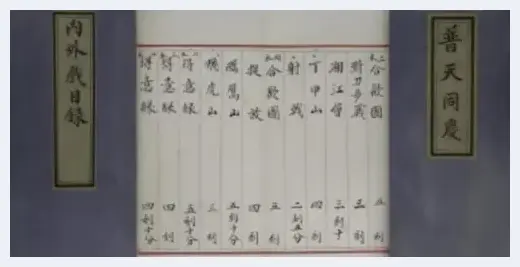 普天同慶
合歡圖 五刻
刀步戰 三刻
湘江會 三刻十
丁甲山 四刻
射戟 二刻五分
合歡圖 五刻
捉放 四刻
鷹山 五刻十分
虎山 三刻
得意緣 五刻十分
得意緣 四刻
得意緣 四刻十分
內外戲目錄